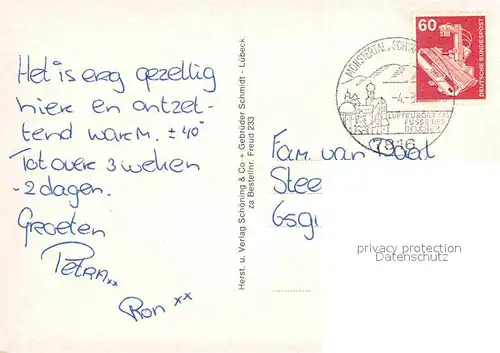 Het is erg gezellig
hier en ontzet-
tend warm. ± 40°
Tot over 3 weken
- 2 dagen.
Groeten
Petra xx
Ron xx
Herst. u. Verlag Schöning & Co + Gebrüder Schmidt - Lübeck
za Bestellnr. Freud 233
MÜNSTERTAL, SCHW
-4.-8
LUFTKURORT AM
FUSSE DES
BELCHEN
7816
60
DEUTSCHE BUNDESPOST
Fam. van
Stee
Gsgi
privacy protection
Datenschutz